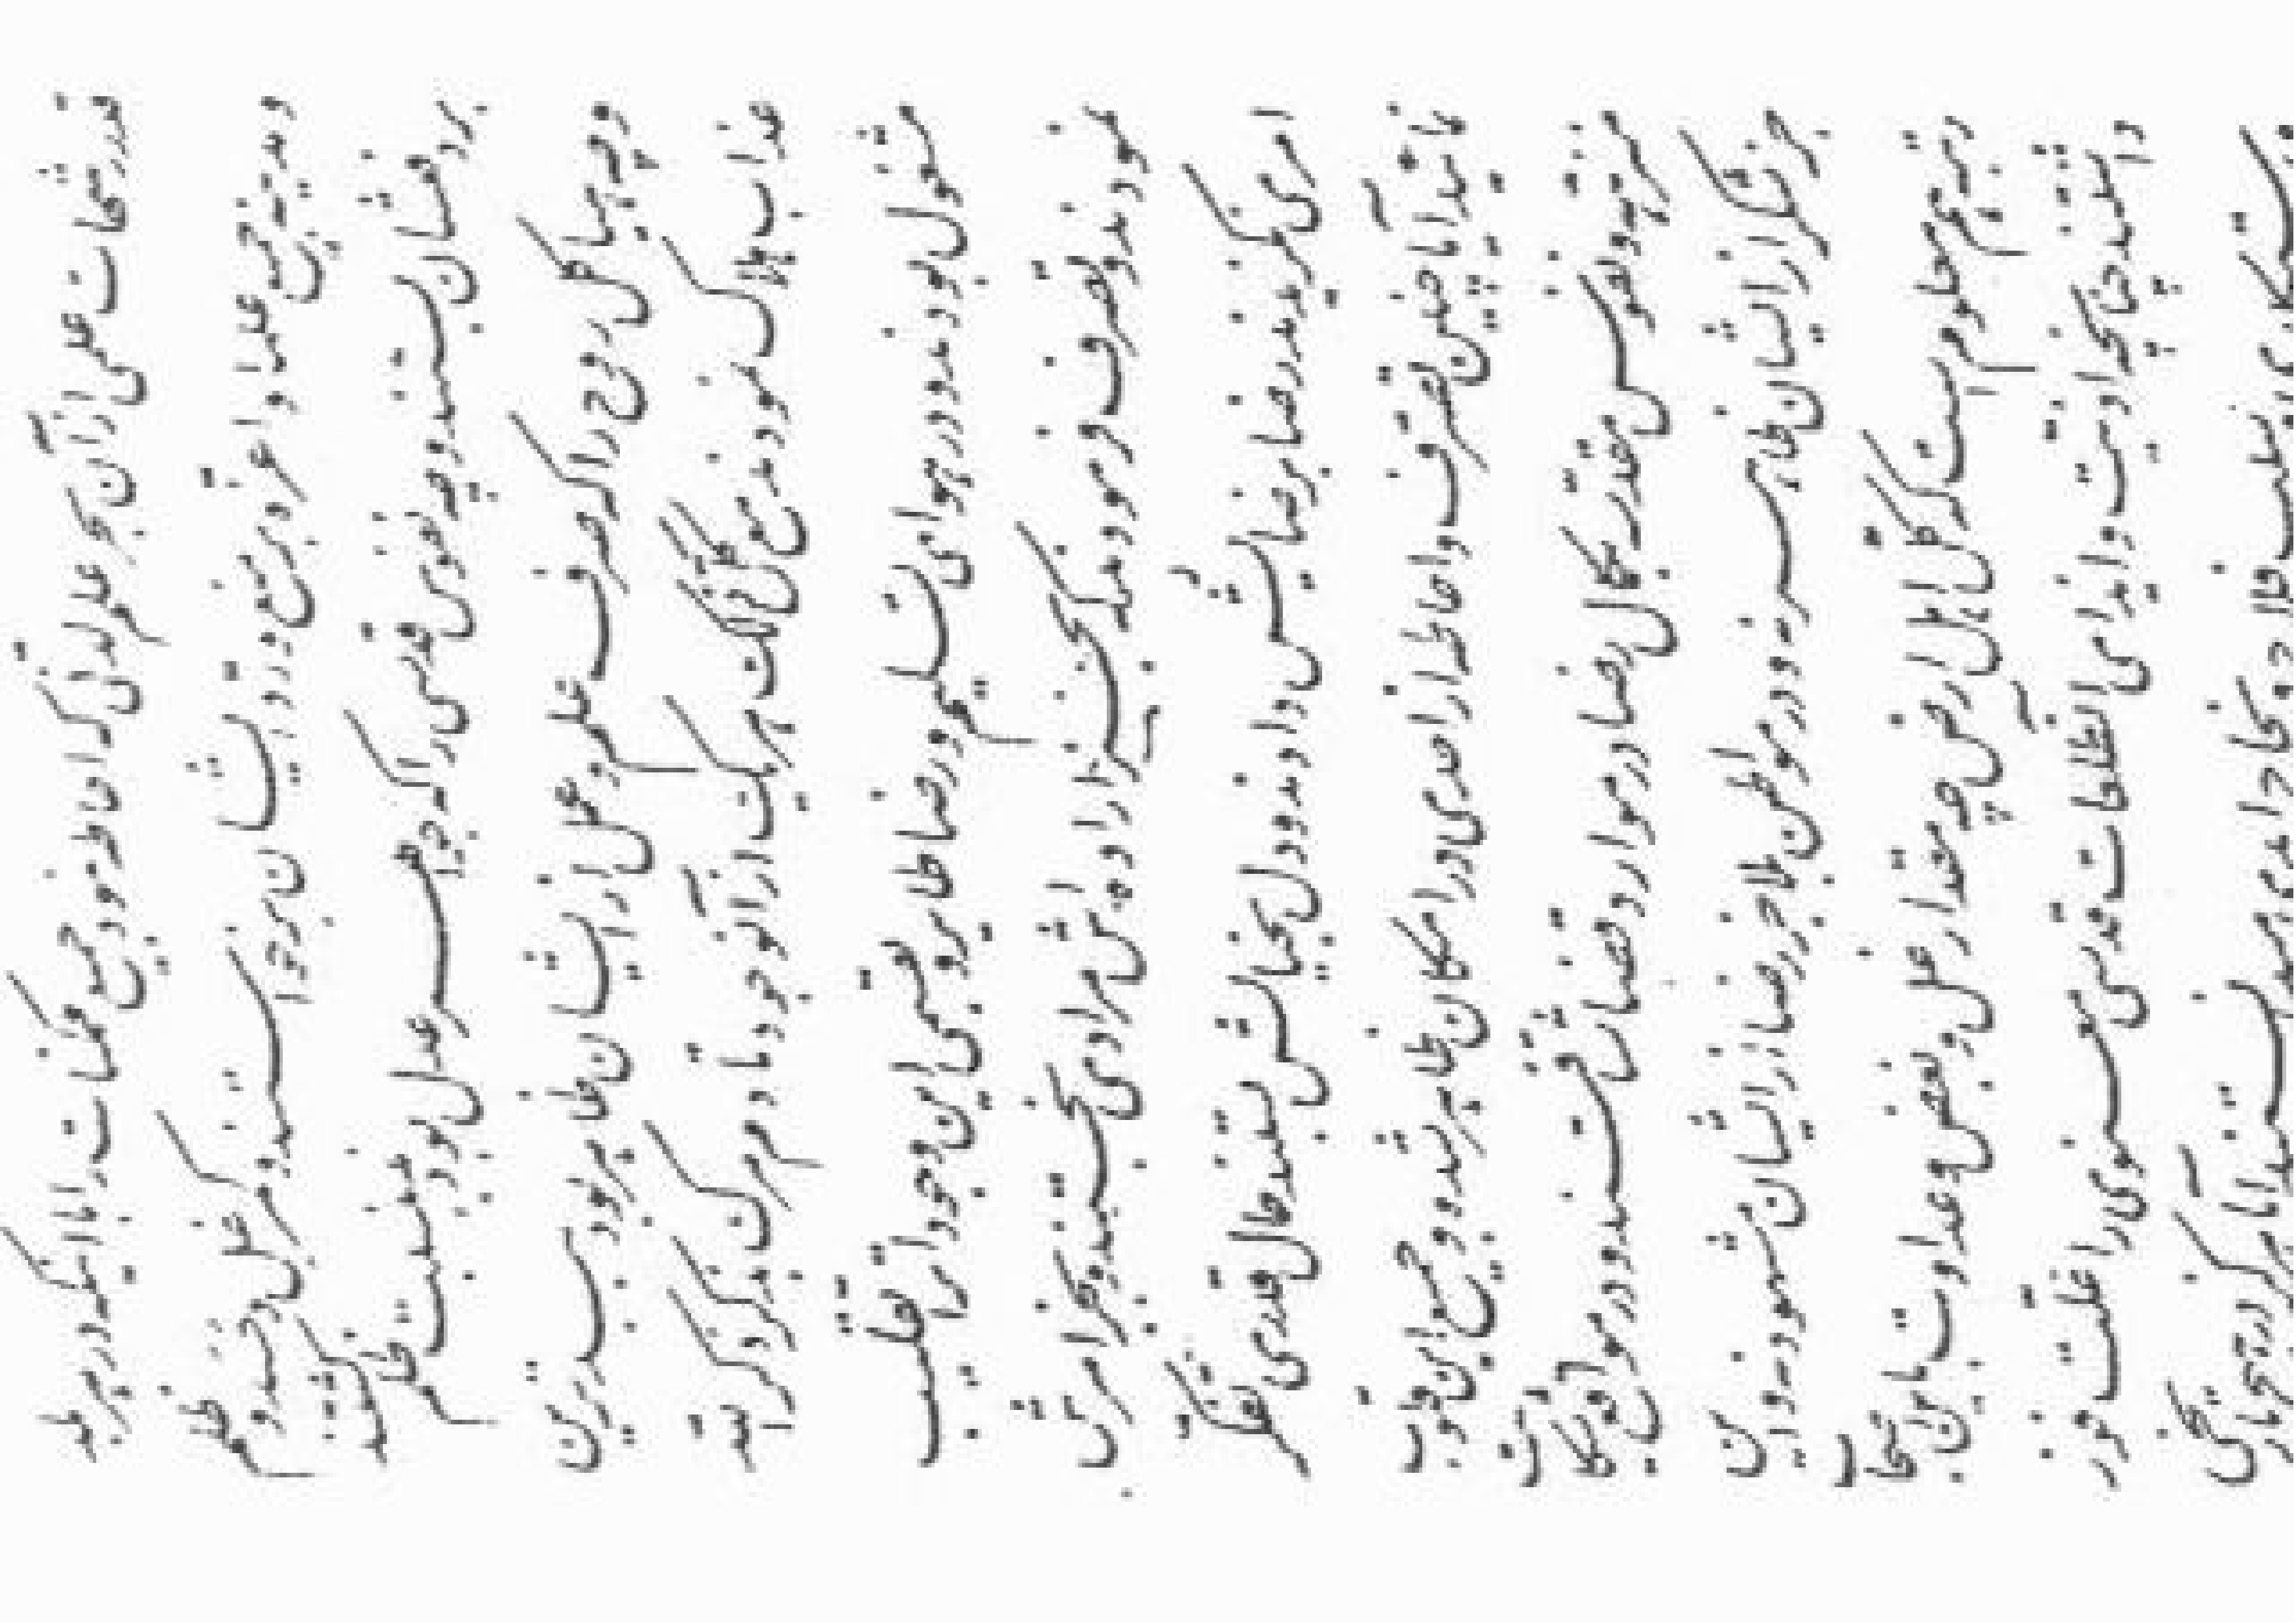 قدر رشحات علمی از آن بحر علم لدنی که احاطه نمود جمیع ممکنات را با اینکه در هر بلد
و مدینه جمیع علما و اعزه بر منع و رد ایشان برخواستند و کمر غل و حسد و ظلم
بر دفعشان بستند و چه نفوس قدسی را که جواهر عدل بودند بنسبت ظلم کشتند
و چه هیاکل روح را که صرف علم و عمل از ایشان ظاهر بود ببدترین
عذاب هلاک نمودند مع کل ذلک هر یک از آن وجودات تا دم مرگ بذکر الله
مشغول بودند و در هوای تسلیم و رضا طایر و بقسمی این وجودات را تقلیب
نمودند و تصرف فرمودند که بجز اراده اش مرادی نجستند و بجز امرش
امری نگزیدند رضا برضایش دادند و دل بخیالش بستند حال قدری تفکر
نمائید آیا چنین تصرف و احاطه از احدی در امکان ظاهر شده و جمیع این قلوب
منزهه و نفوس مقدسه بکمال رضا در موارد قضا شتافتند و در مواقع شکایت
جز شکر از ایشان ظاهر نه و در مواطن بلا جز رضا از ایشان مشهود نه و این
رتبه هم معلوم است که کل اهل ارض چه مقدار غل و بغض و عداوت باین اصحاب
داشتند چنانچه اذیت و ایذای آن طلعات قدسی معنوی را علت فوز
و رستگاری و سبب فلاح و نجاح ابدی میدانستند آیا هرگز در هیچ تاریخی